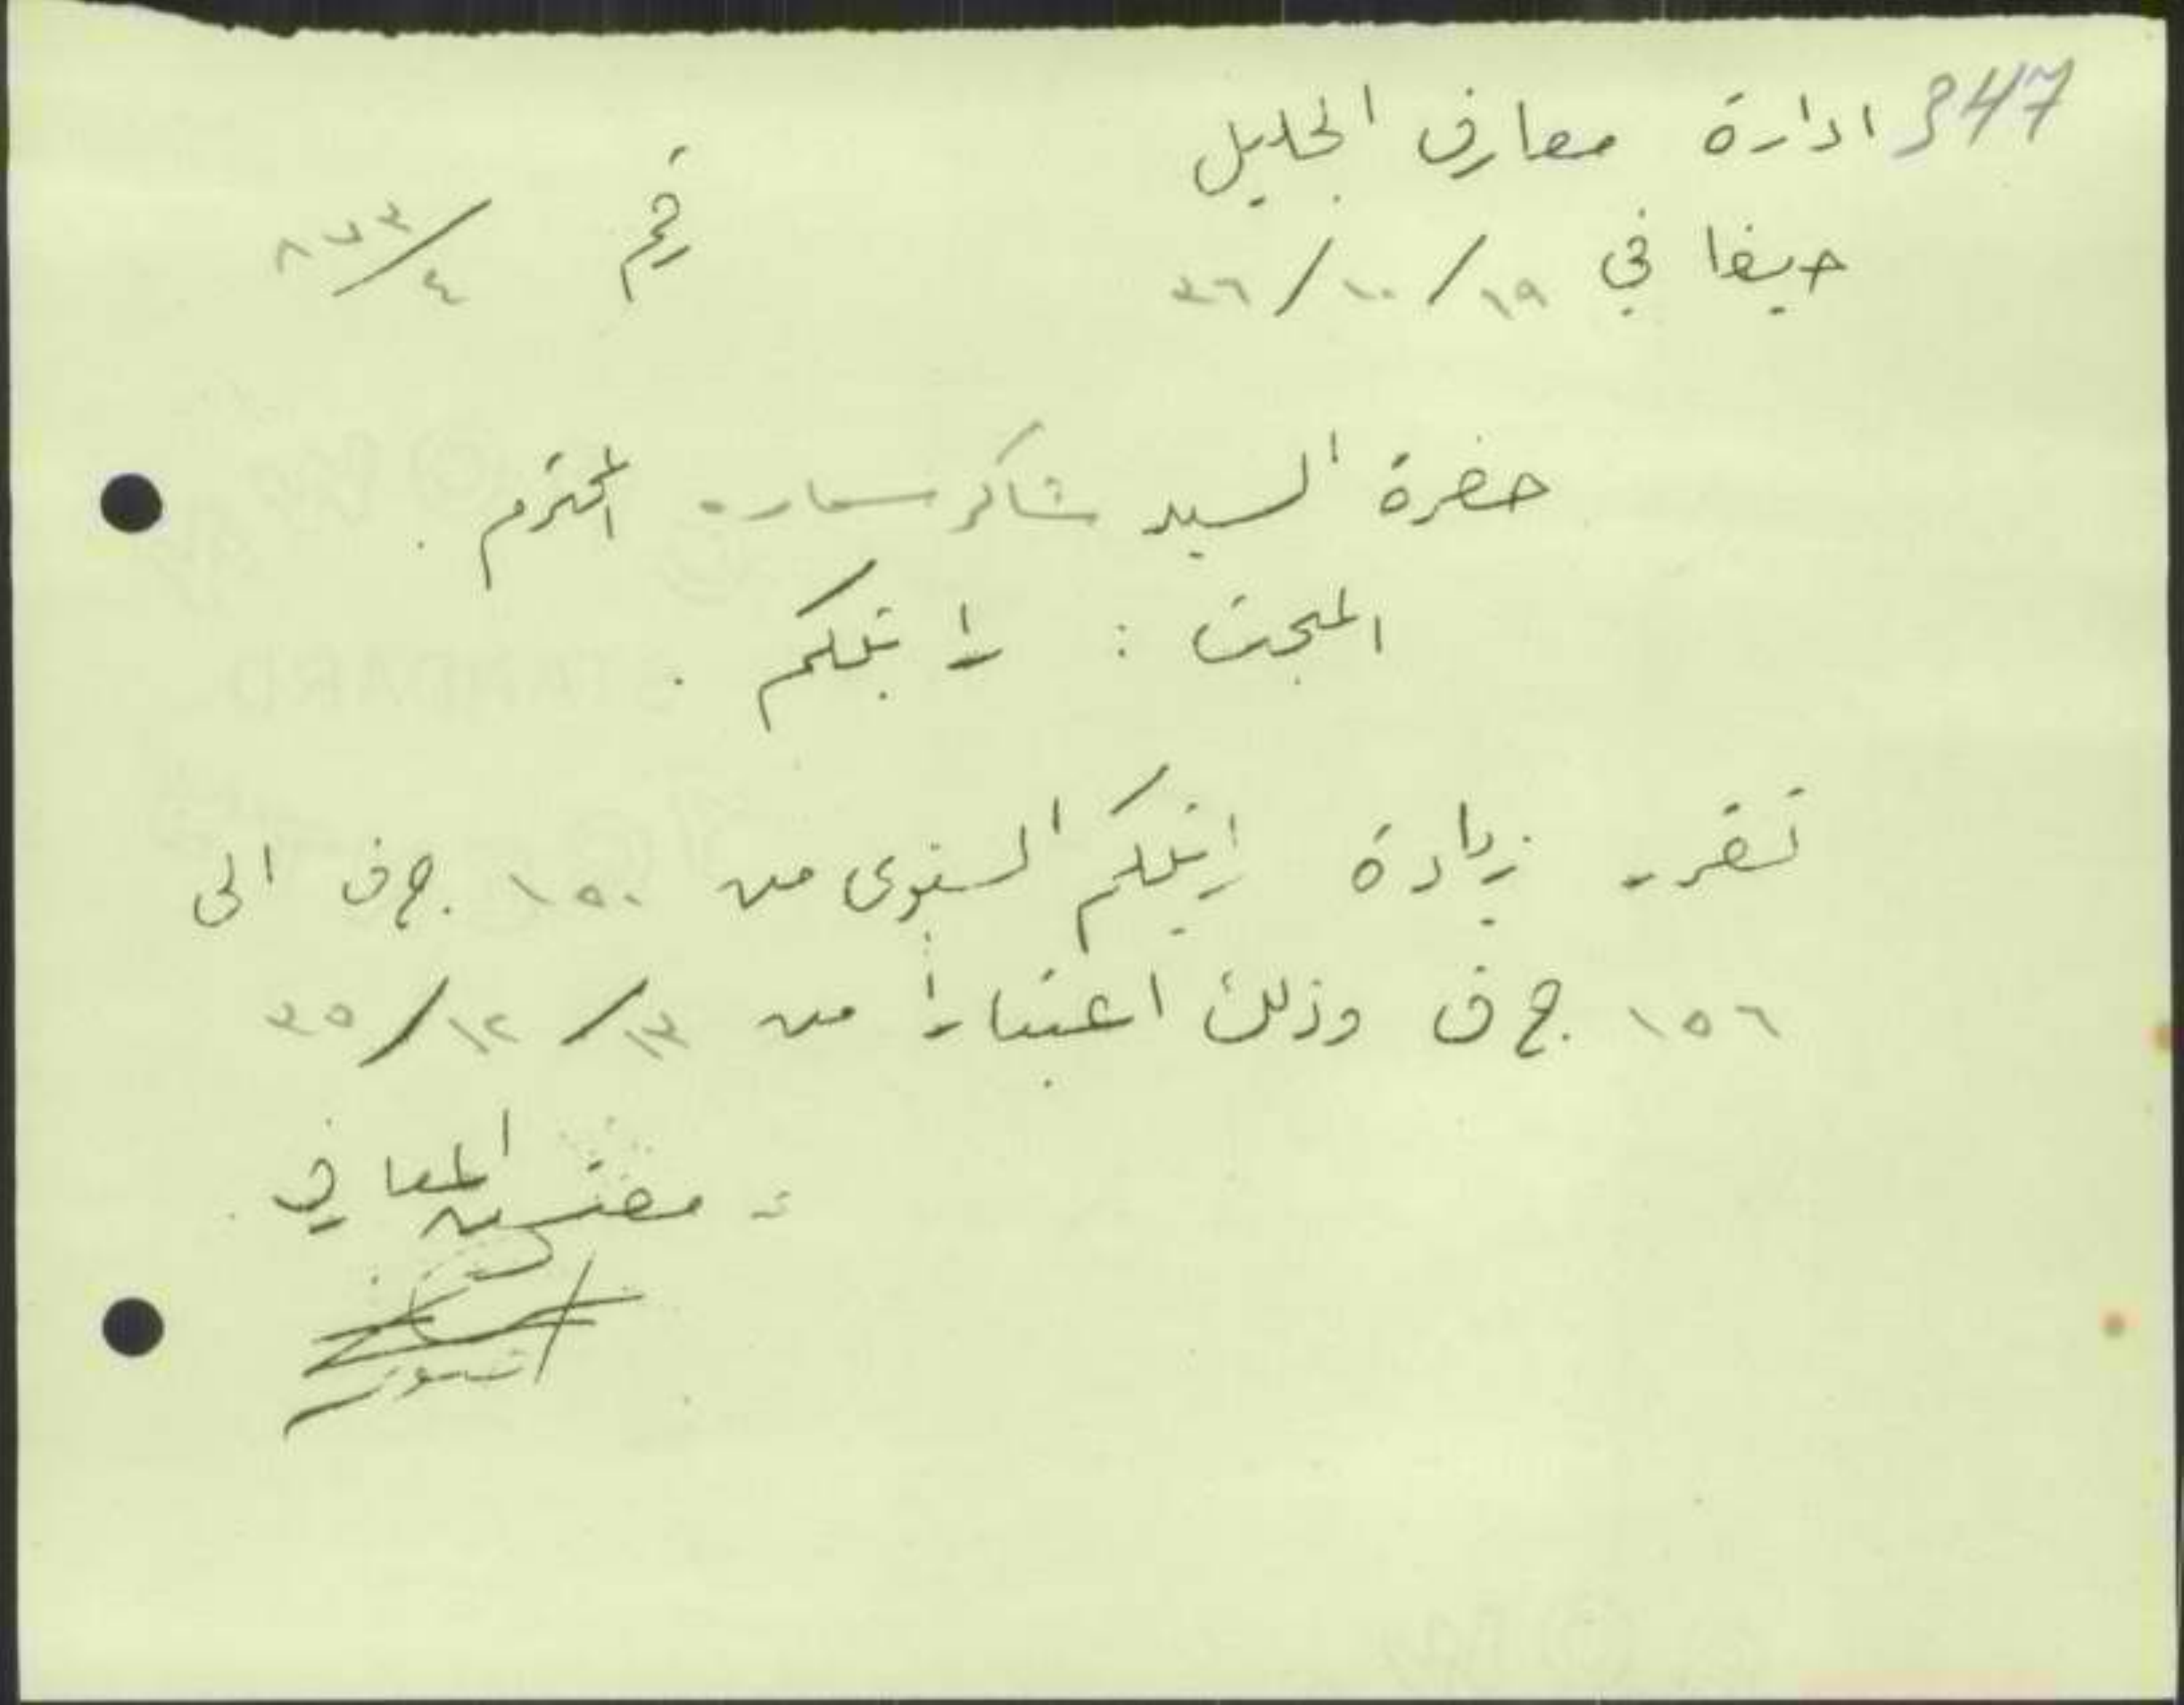 347 ادارة معارف الجليل
حيفا في ١٩/١٠/٣٦ رقم ٨٧٣/٤
حضرة السيد شاكر سماره المحترم .
المبحث : راتبكم .
تقرر زيادة راتبكم السنوى من ١٥٠ ج ف الى
١٥٦ ج ف وذلك اعتبارا من ١٣/١٢/٣٥
مفتش المعارف
STANDARD